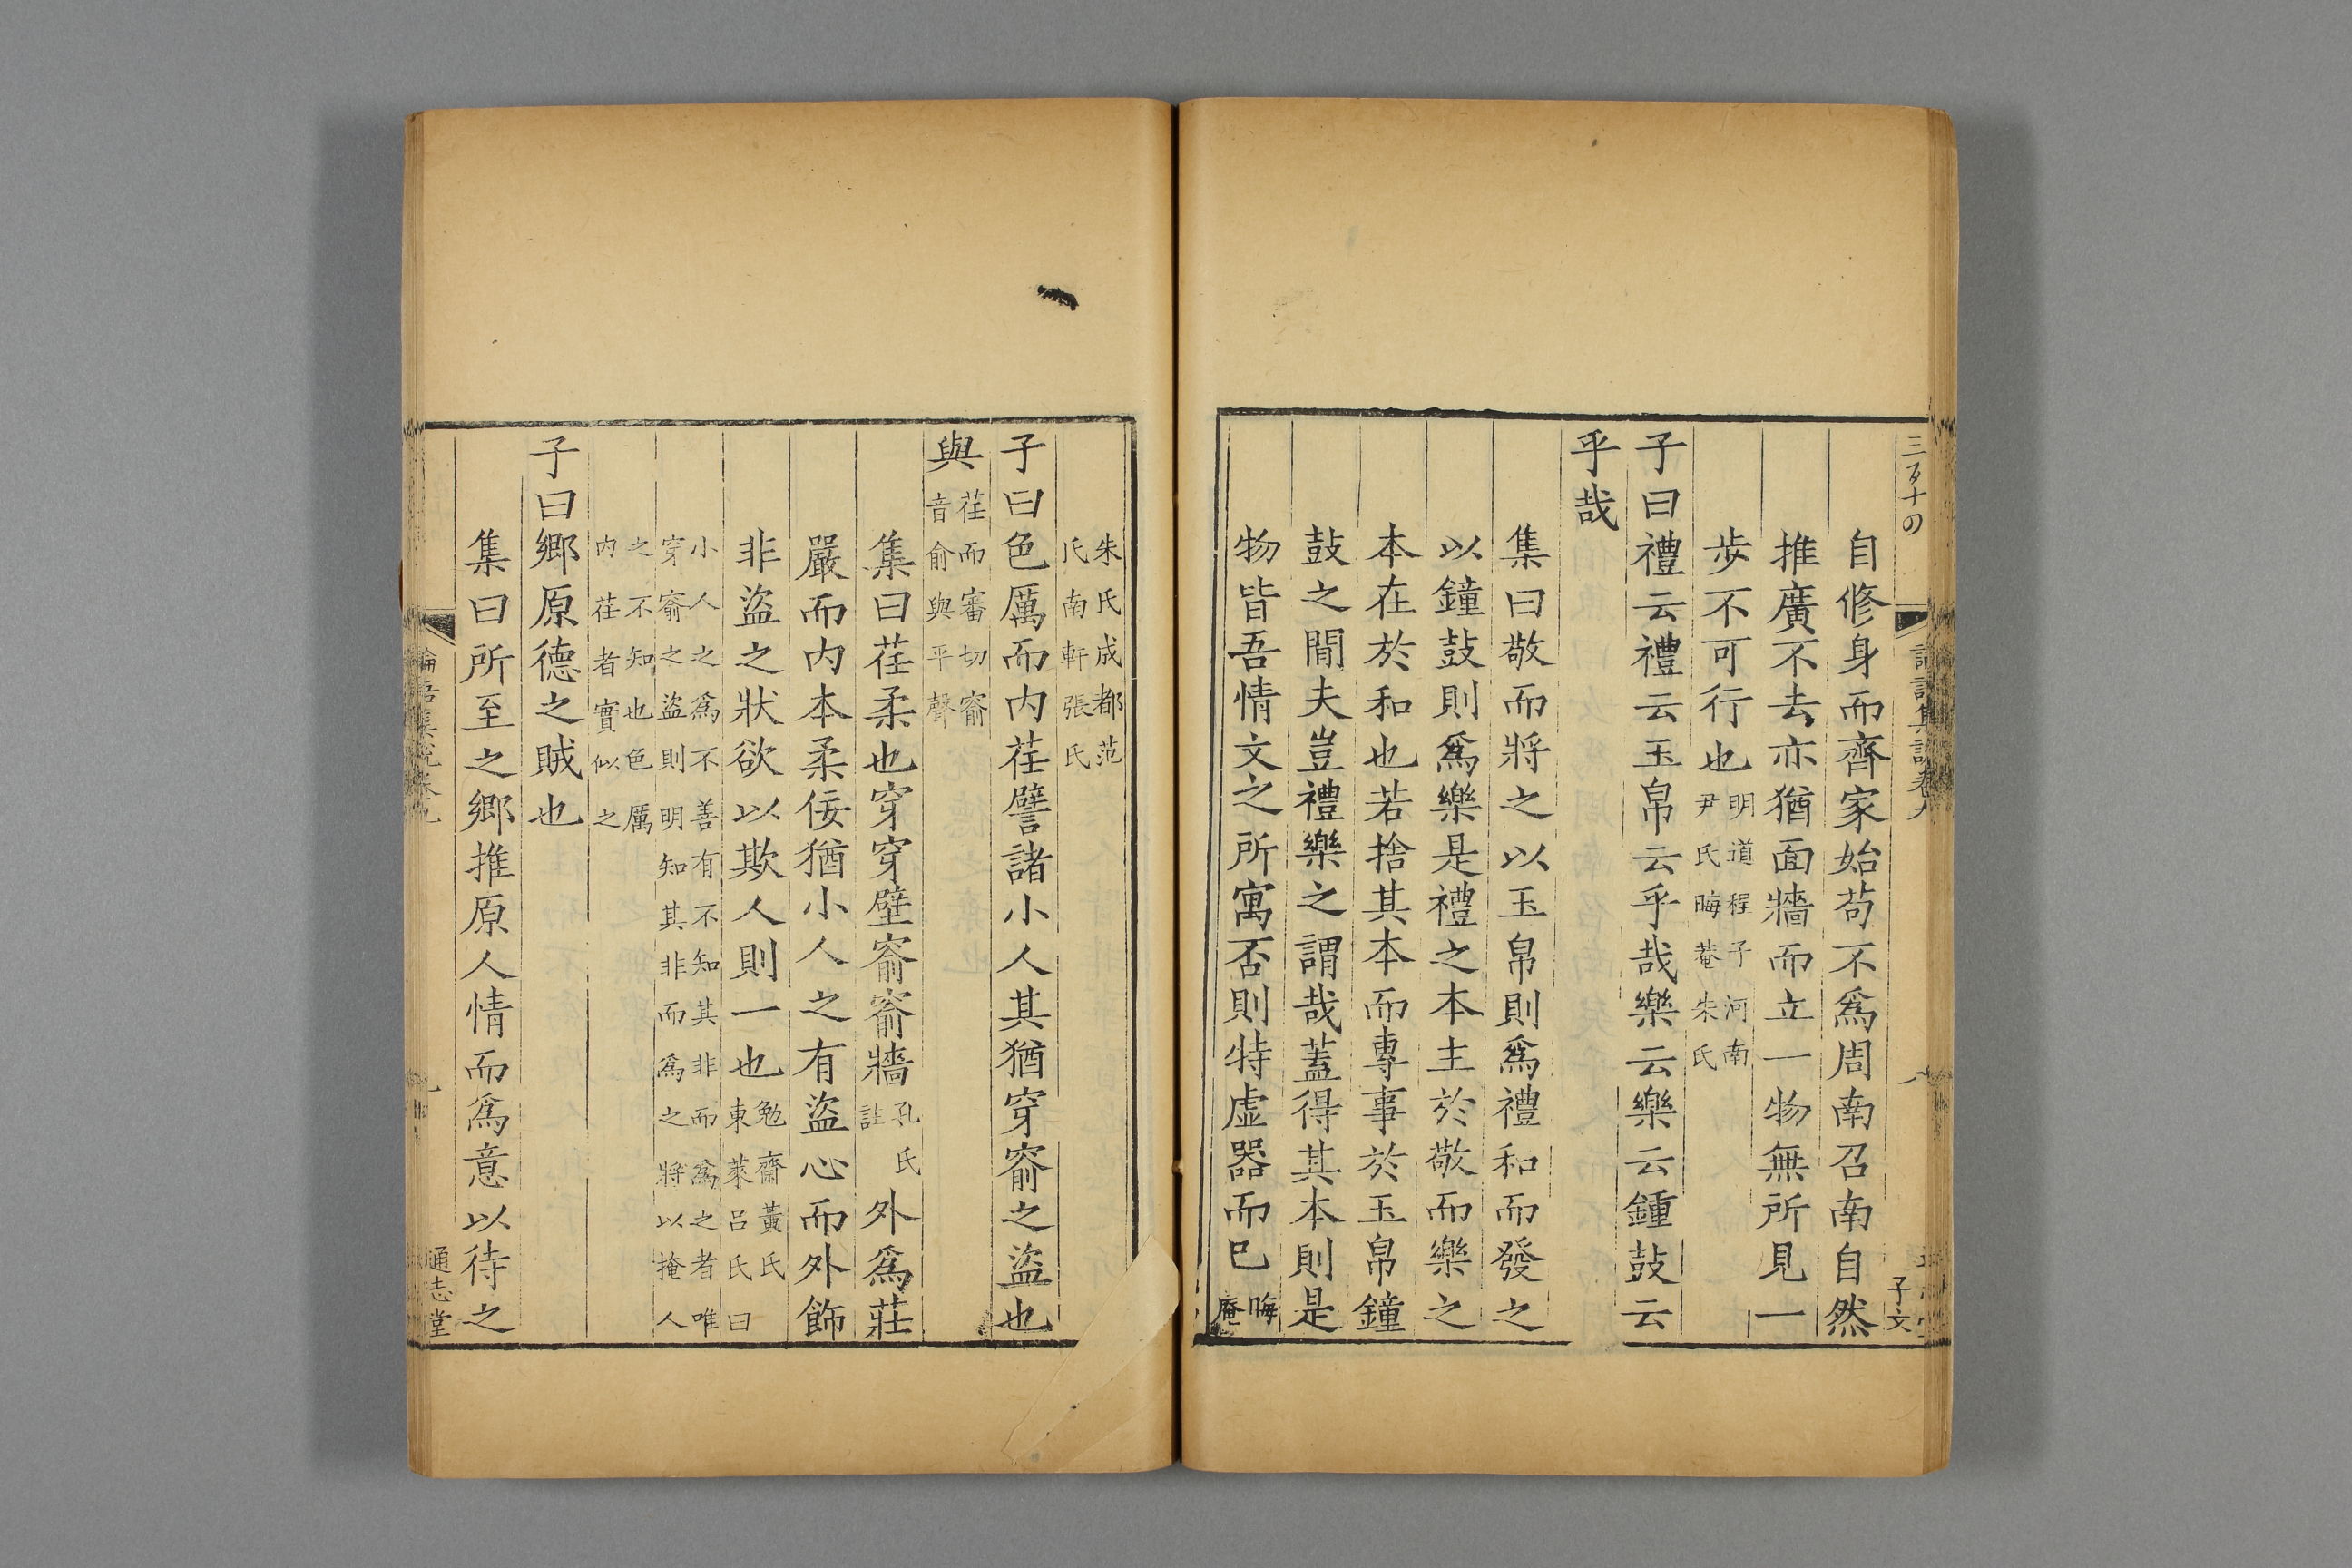 三百十四
自修身而齊家始苟不爲周南召南自然
推廣不去亦猶面牆而立一物無所見一
步不可行也明道程子河南尹氏晦菴朱氏
子曰禮云禮云玉帛云乎哉樂云樂云鍾鼓云
乎哉
集曰敬而將之以玉帛則爲禮和而發之
以鐘鼓則爲樂是禮之本主於敬而樂之
本在於和也若捨其本而專事於玉帛鐘
鼓之閒夫豈禮樂之謂哉蓋得其本則是
物皆吾情文之所寓否則特虛器而巳晦庵
朱氏成都范氏南軒張氏
子曰色厲而内荏譬諸小人其猶穿窬之盜也
與荏而審切窬音俞與平聲
集曰荏柔也穿穿壁窬窬牆孔氏註外爲莊
嚴而内本柔佞猶小人之有盜心而外飾
非盜之狀欲以欺人則一也勉齋黃氏東萊呂氏曰
小人之爲不善有不知其非而爲之者唯穿窬之盜則明知其非而爲之將以掩人
之不知也色厲内荏者實似之
子曰鄉原德之賊也
集曰所至之鄉推原人情而爲意以待之
論語集說卷九
通志堂
子文